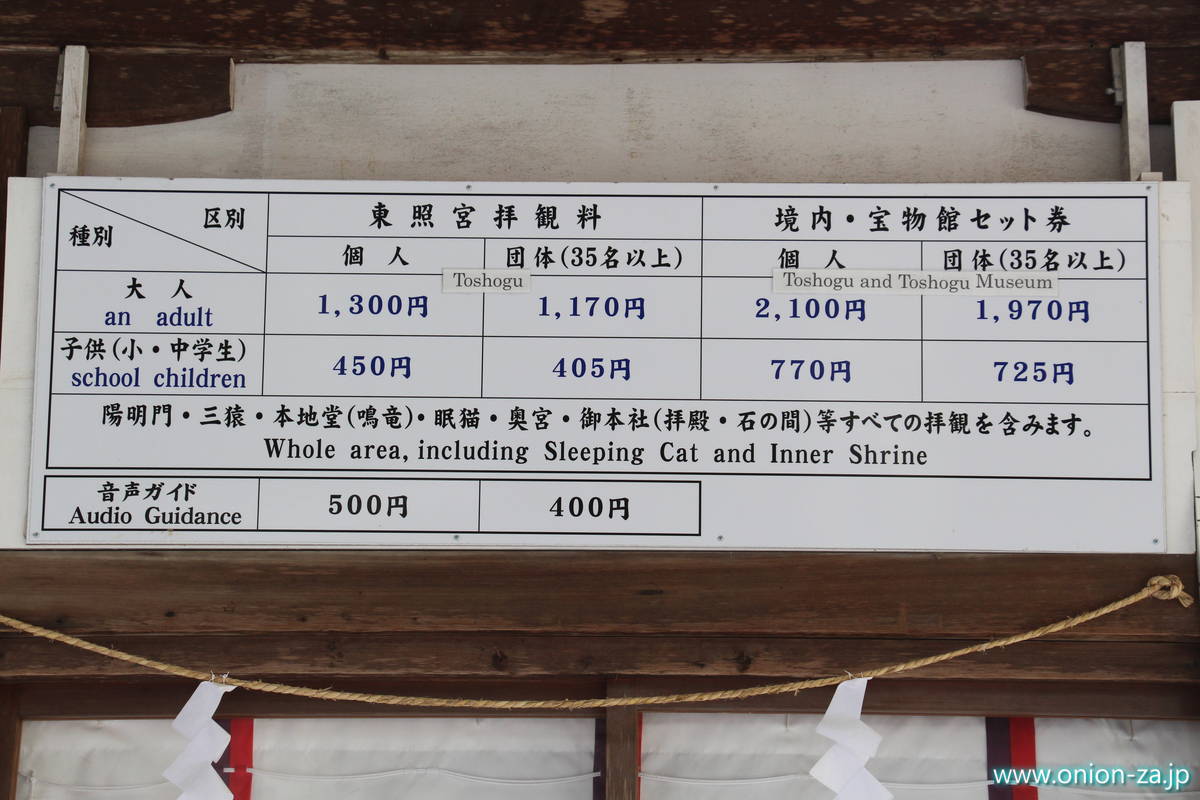 区別
種別
東照宮拝観料
境内・宝物館セット券
個人
団体(35名以上)
個人
団体(35名以上)
Toshogu
Toshogu and Toshogu Museum
大人
an adult
1,300円
1,170円
2,100円
1,970円
子供(小・中学生)
school children
450円
405円
770円
725円
陽明門・三猿・本地堂(鳴竜)・眠猫・奥宮・御本社(拝殿・石の間)等すべての拝観を含みます。
Whole area, including Sleeping Cat and Inner Shrine
音声ガイド
Audio Guidance
500円
400円
www.onion-za.jp